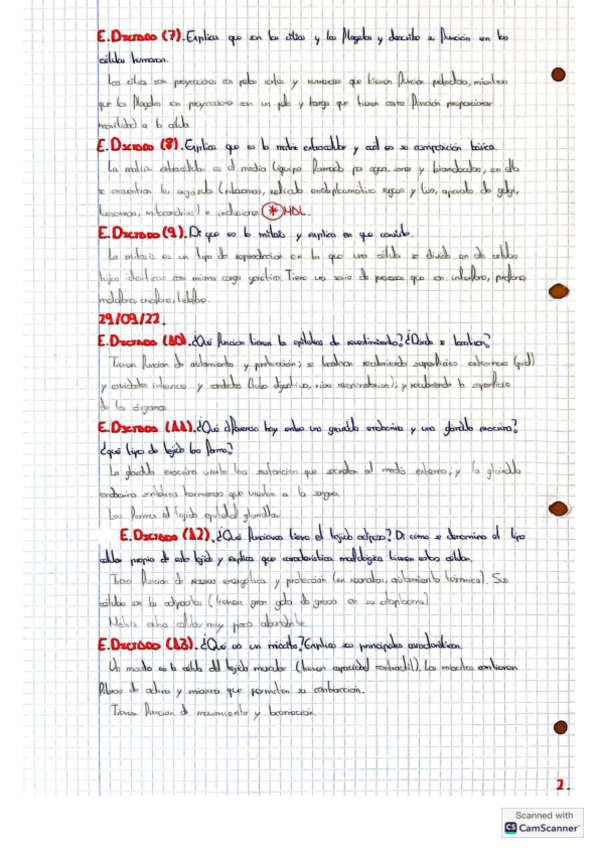 E.Dictado (7). Explica que son los cilios y los flagelos y describe su función en las
células humanas.
Los cilios son proyecciones con pelos cortos y numerosos que tienen función, mientras
que los flagelos son proyecciones con un pelo y largo que tienen como función proporcionar
movilidad a la célula.
E.Dictado (8). Explica que es la matriz extracelular y cuál es su composición básica.
La matriz extracelular es el medio líquido formado por agua, iones y biomoléculas, en ella
se encuentran los orgánulos (ribosomas, retículo endoplasmático rugoso y liso, aparato de golgi,
lisosomas, mitocondrias) e inclusiones * HDL.
E.Dictado (9). Di que es la mitosis y explica en que consiste.
La mitosis es un tipo de reproducción en la que una célula se divide en dos células
hijas idénticas con misma carga genética. Tiene una serie de procesos que son interfase, profase,
metafase, anafase, telofase.
29/09/22.
E.Dictado (10). ¿Qué función tienen los epitelios de revestimiento? ¿Dónde se localizan?
Tienen función de aislamiento y protección; se localizan recubriendo superficies externas (piel)
y cavidades internas y conductos (tubo digestivo, vías respiratorias); y recubriendo la superficie
de los órganos.
E.Dictado (11). ¿Qué diferencia hay entre una glándula endocrina y una glándula exocrina?
¿qué tipo de tejido las forma?
La glándula exocrina vierte las sustancias que secretan al medio externo; y la glándula
endocrina sintetiza hormonas que viertan a la sangre.
Las forma el tejido epitelial glandular.
E.Dictado (12). ¿Qué funciones tiene el tejido adiposo? Di cómo se denomina el tipo
celular propio de este tejido y explica que característica morfológica tienen estas células.
Tiene función de reserva energética y protección (en neonatos, aislamiento térmico). Sus
células son los adipocitos (tienen gran gota de grasa en su citoplasma)
Matriz extra celular muy poco abundante.
E.Dictado (13). ¿Qué es un miocito? Explica sus principales características.
Un miocito es la célula del tejido muscular (tienen capacidad contráctil). Los miocitos contienen
fibras de actina y miosina que permiten su contracción.
Tienen función de movimiento y locomoción.
2.
Scanned with
CS CamScanner